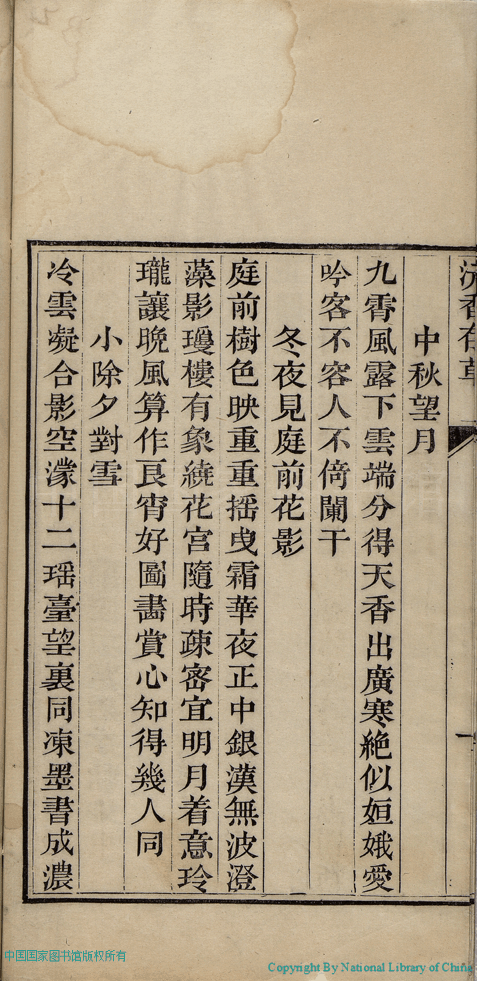 中秋望月
九霄風露下雲端分得天香出廣寒絶似姮娥愛
吟客不容人不倚闌干
冬夜見庭前花影
庭前樹色映重重摇曳霜華夜正中銀漢無波澄
藻影瓊樓有象繞花宮隨時疎密宜明月着意玲
瓏讓晩風算作良宵好圖畵賞心知得幾人同
小除夕對雪
冷雲凝合影空濛十二瑶臺望裏同凍墨書成濃
中国国家图书馆版权所有
Copyright By National Library of China